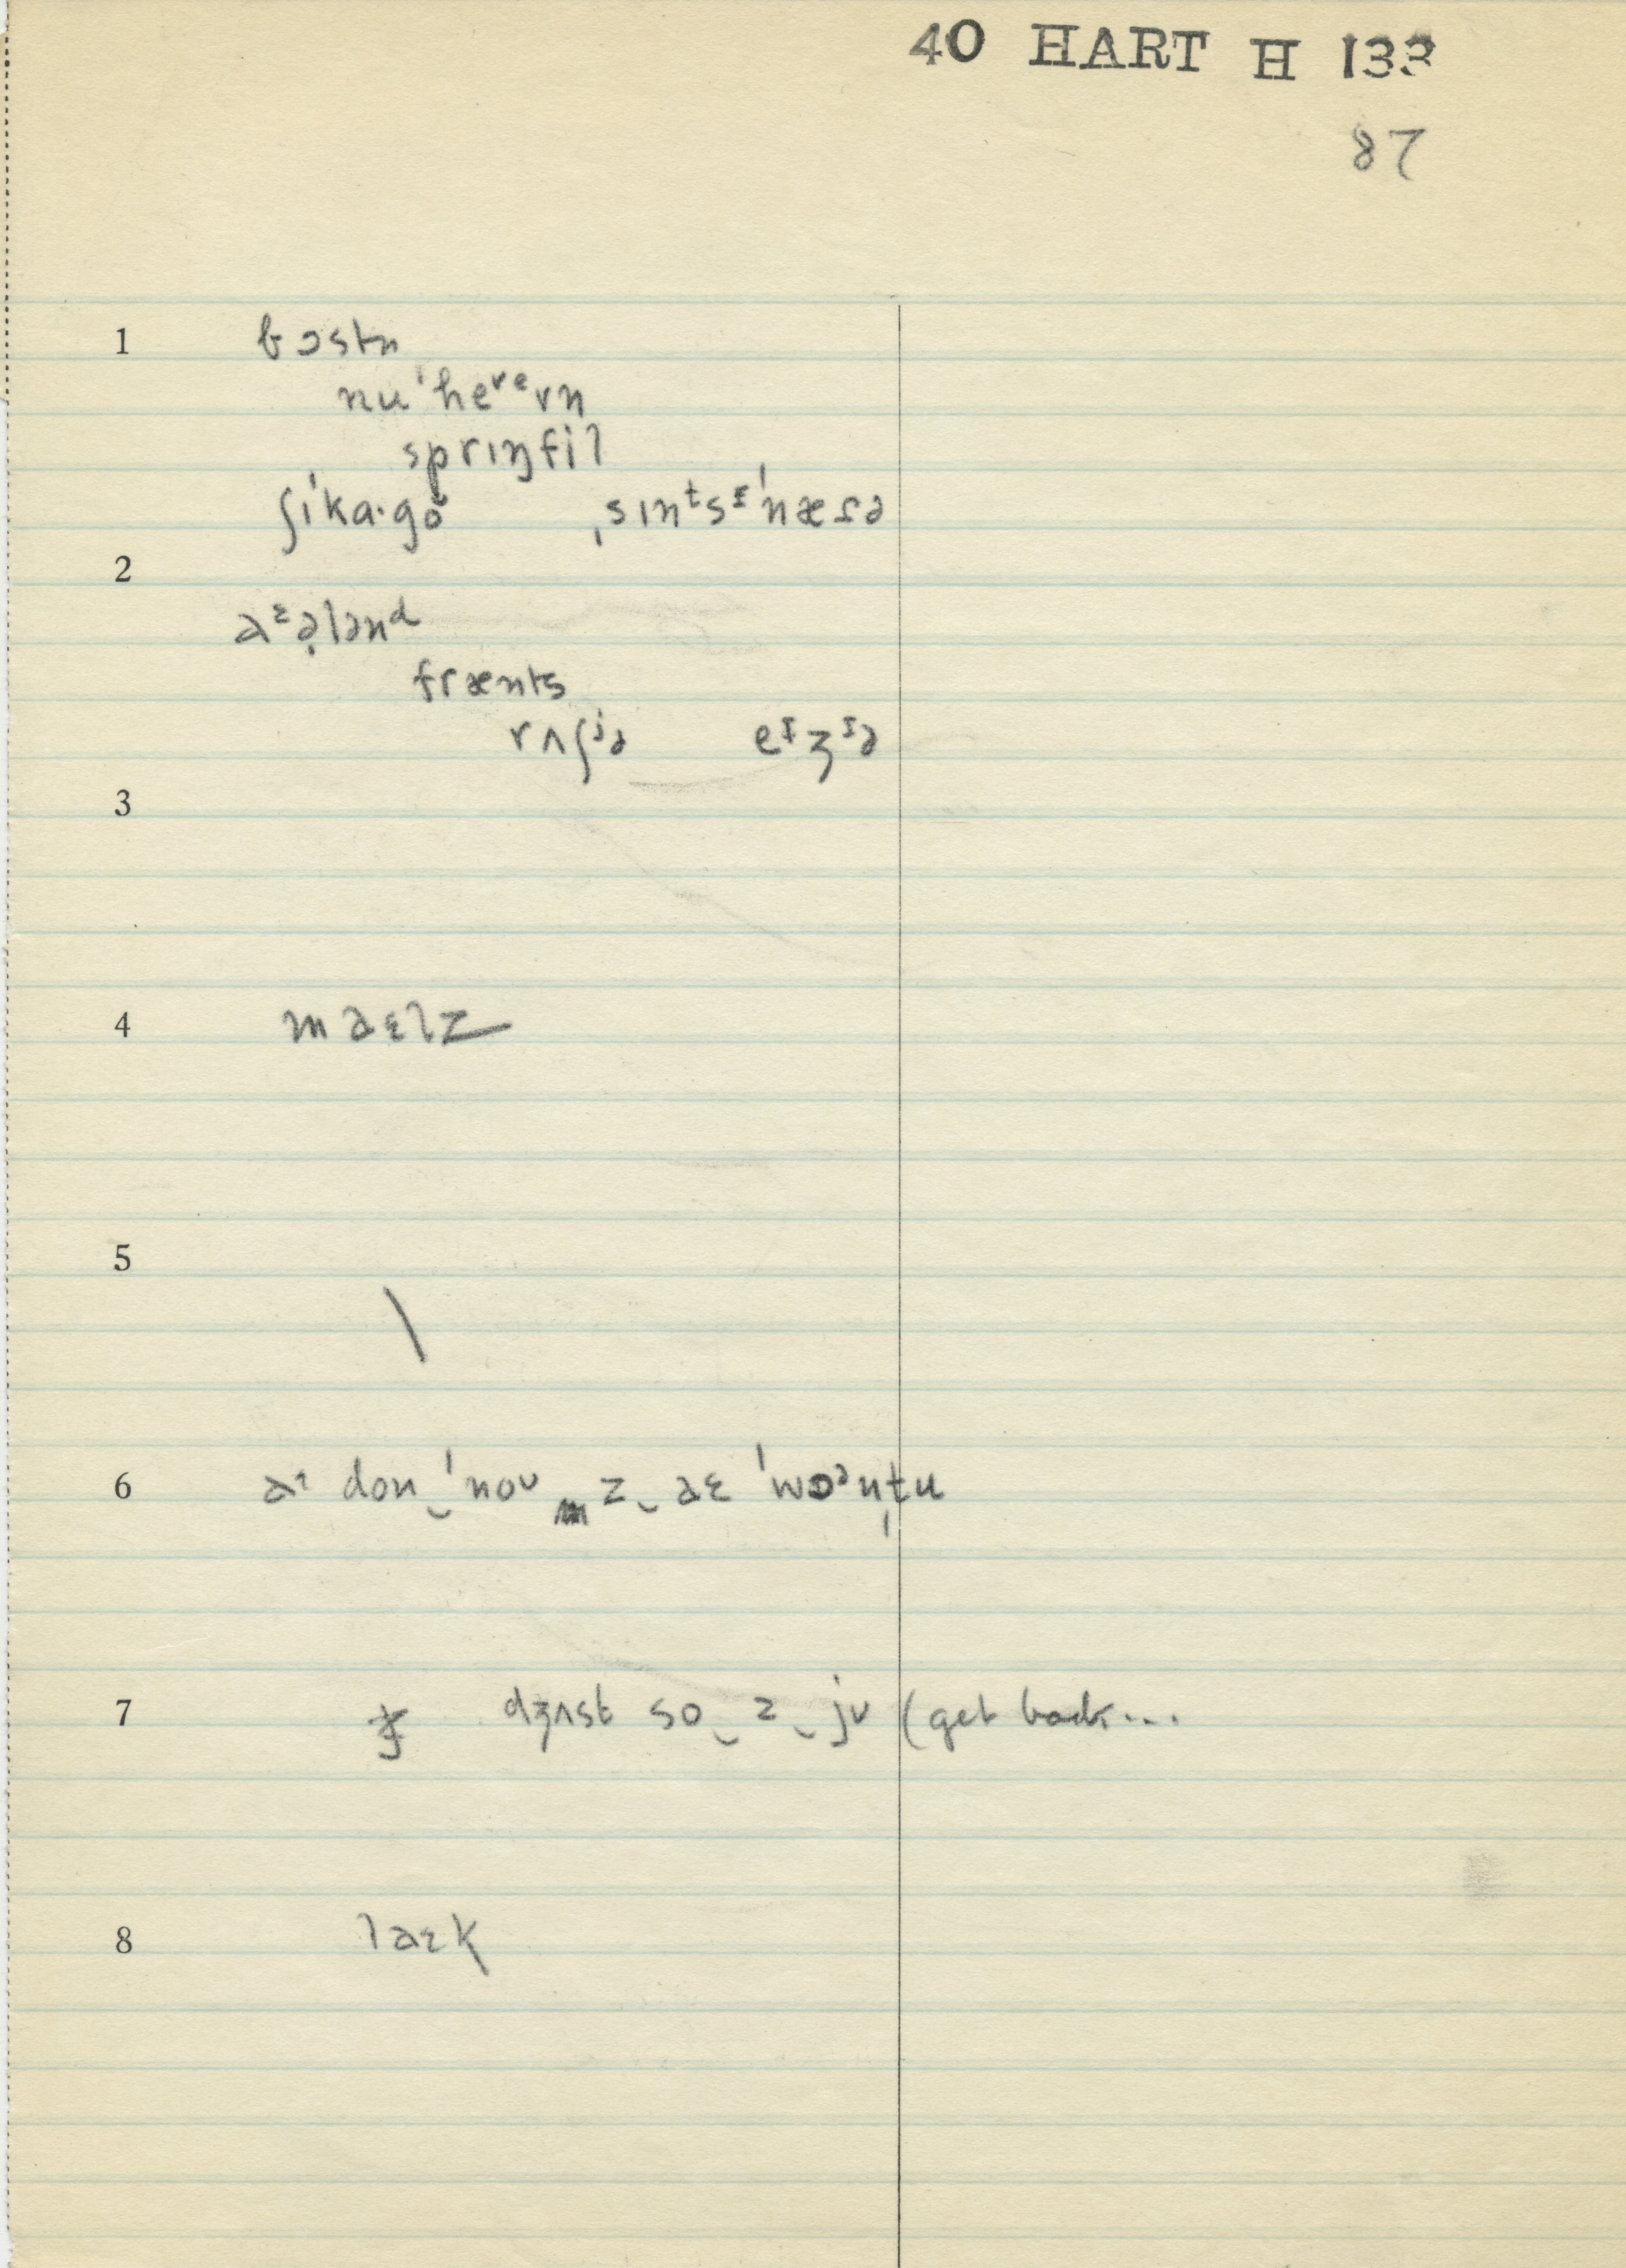 40 HART H 133
87
1 bɔstn
nu'heᵛᵉvn
sprɪŋfil
ʃɪ'ka·gō ˌsɪnᵗsᶦ'næɾə
2
aᵋə̣lənᵈ
frænts
rʌʃʲə eᶦʒᶦə
3
4 maɛlz
5 \
6 don‿'noᴜ z‿aɛ 'wɔᵊntu
7 dʒʌst so‿z‿jᴜ (get back...
8 laɛk